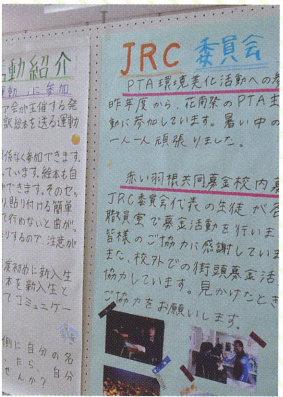 動紹介
運動」に参加
ア会が主催する発
訳絵本を送る運動
係なく参加できます。
ています。絵本も自
できます。そのせい
り貼り付ける簡単
て行わないと曲が
りするので、注意が
度初めに新入生
本を新入生と
てコミュニケー
側に自分の名
たら、自分
せんか?
JRC 委員会
PTA環境美化活動への参
昨年度から、花南祭のPTA主
動に参加しています。暑い中の
一人一人頑張りました。
赤い羽根共同募金校内募
JRC委員会代表の生徒が各
職員室で募金活動を行いま
皆様のご協力に感謝していま
また、校外での街頭募金活
協力しています。見かけたとき
ご協力をお願いします。